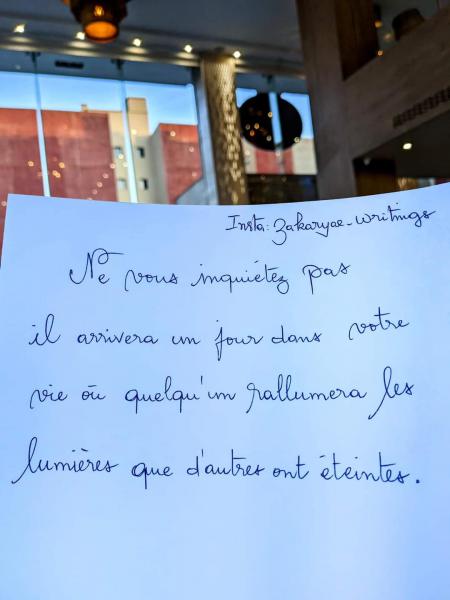 Insta: zakaryae_writings
Ne vous inquiétez pas
il arrivera un jour dans votre
vie où quelqu'un rallumera les
lumières que d'autres ont éteintes.